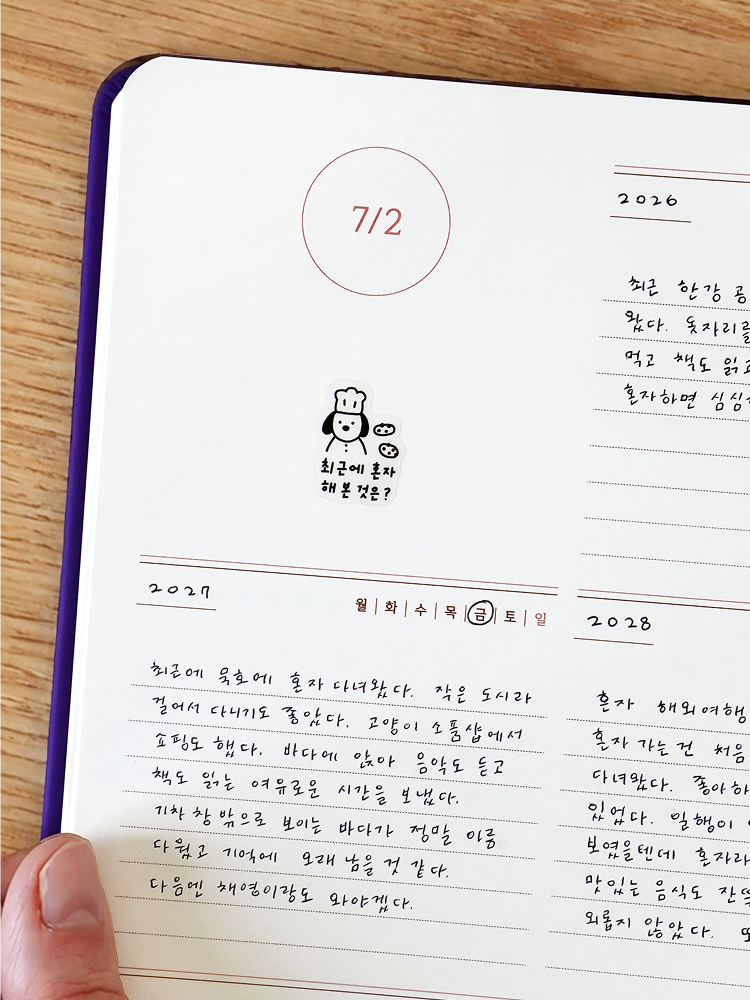 7/2
최근에 혼자
해 본 것은?
2026
최근 한강 공
왔다. 돗자리를
먹고 책도 읽고
혼자하면 심심
2027
월 | 화 | 수 | 목 | 금 | 토 | 일
최근에 묵호에 혼자 다녀왔다. 작은 도시라
걸어서 다니기도 좋았다. 고양이 소품샵에서
쇼핑도 했다. 바다에 앉아 음악도 듣고
책도 읽는 여유로운 시간을 보냈다.
기차 창 밖으로 보이는 바다가 정말 아름
다웠고 기억에 오래 남을 것 같다.
다음엔 채영이랑도 와야겠다.
2028
혼자 해외여행
혼자 가는 건 처음
다녀왔다. 좋아하
있었다. 일행이
보였을텐데 혼자라
맛있는 음식도 잔뜩
외롭지 않았다. 또